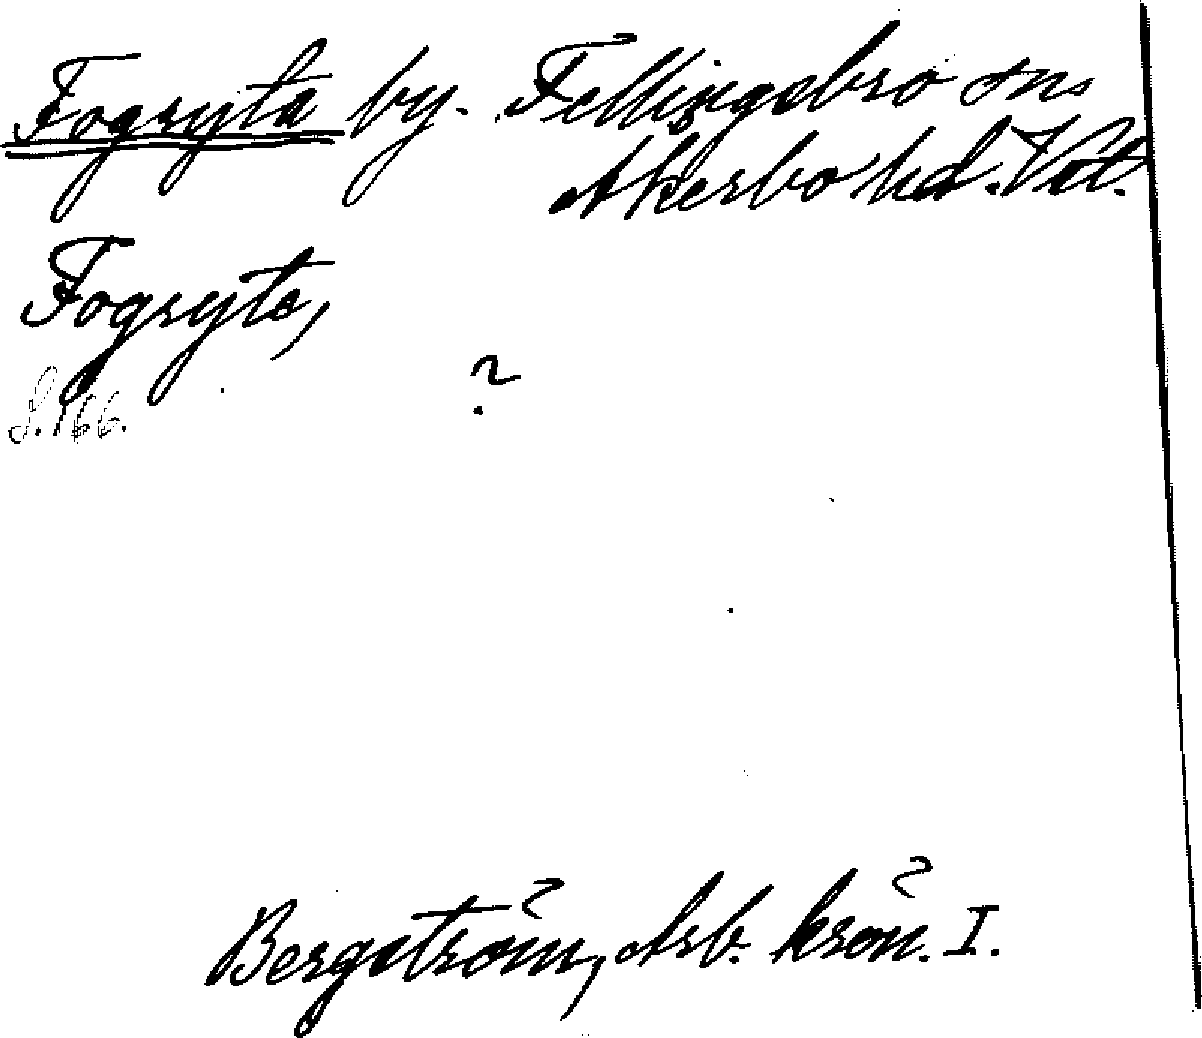 Fogryta by. Fellingsbro sn.
Åkerbo hd. Vst.
Fogryte,
?
S. 166.
Bergström, Arb. krön. I.